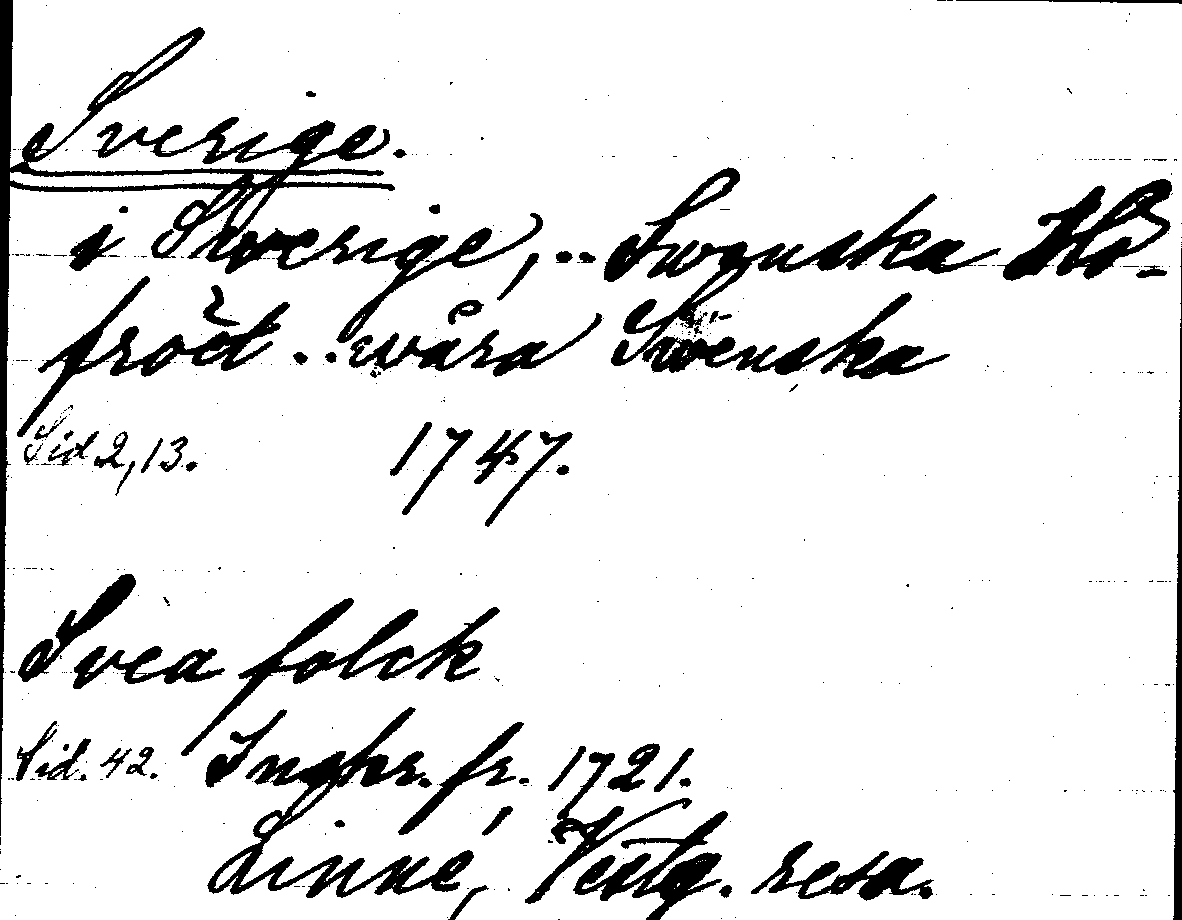 Sverige.
i Swerige, .. Swenska Hö-
fröet .. wåra Swenska
Sid 2, 13. 1747.
Svea folck
Sid. 42. Inskr. fr. 1721.
Linné, Vestg. resa.